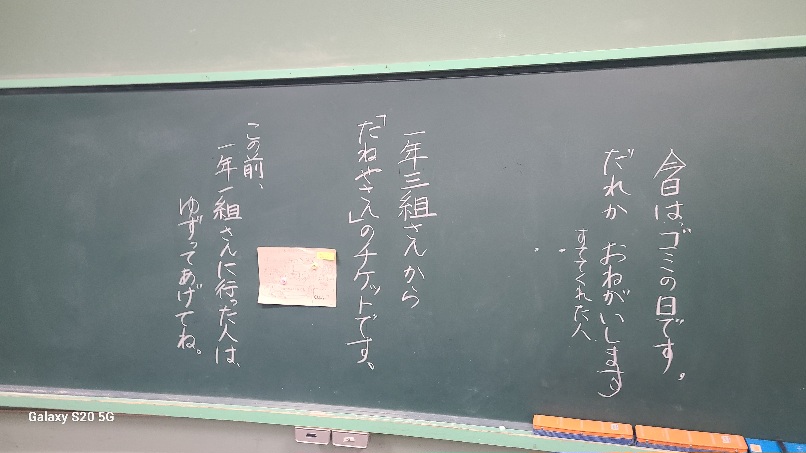 今日は、ゴミの日です。
だれか おねがいします
すててくれた人
一年三組さんから
「たねやさん」のチケットです。
この前、
一年一組さんに行った人は、
ゆずってあげてね。
Galaxy S20 5G